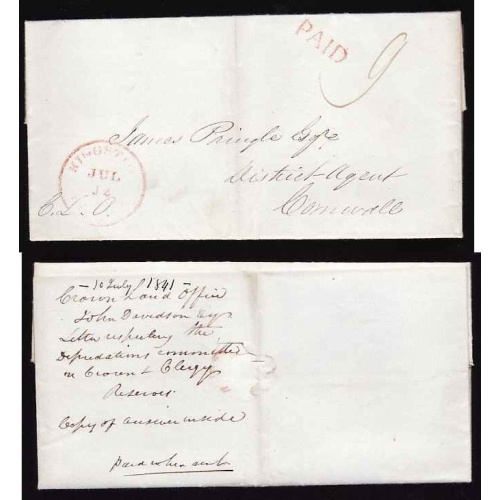 PAID
9
James Pringle Esqre
District Agent
Cornwall
KINGSTON
JUL
12
C.L.O.
- 10 July 1841 -
Crown Land Office
John Davidson Esq
Letter respecting the
Depredations committed
on Crown & Clergy
Reserves
Copy of answer inside
Paid when sent